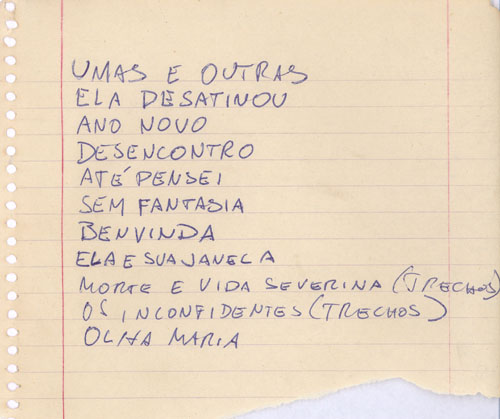 UMAS E OUTRAS
ELA DESATINOU
ANO NOVO
DESENCONTRO
ATÉ PENSEI
SEM FANTASIA
BENVINDA
ELA E SUA JANELA
MORTE E VIDA SEVERINA (TRECHOS)
OS INCONFIDENTES (TRECHOS)
OLHA MARIA